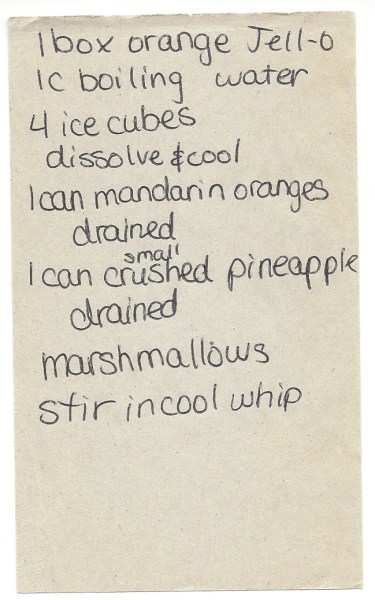 1 box orange Jell-o
1c boiling water
4 ice cubes
dissolve & cool
1 can mandarin oranges
drained
1 can small crushed pineapple
drained
marshmallows
stir in cool whip